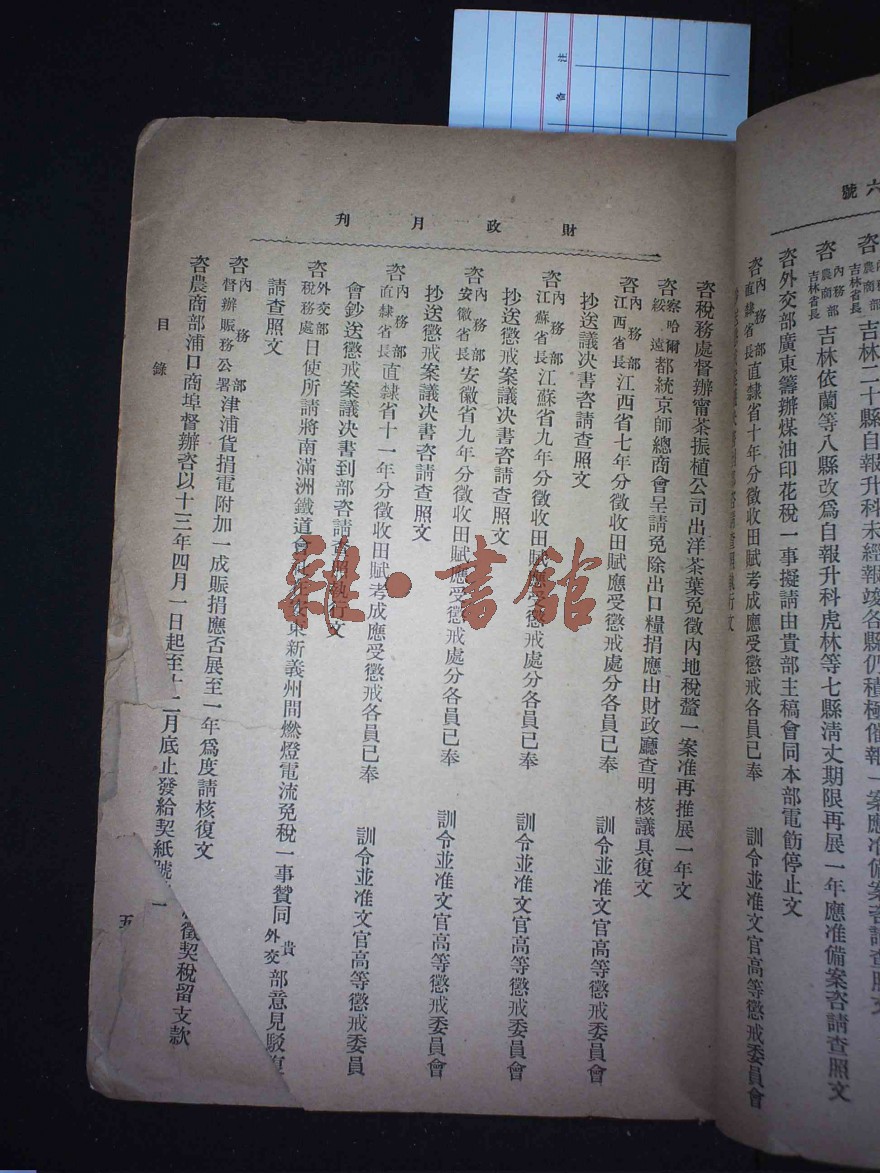 六號
吉林二十縣自報升科未經報竣各縣仍積極催報一案應准備案咨請查照文
咨內務部農商部吉林省長吉林依蘭等八縣改爲自報升科虎林等七縣淸丈期限再展一年應准備案咨請查照文
咨外交部廣東籌辦煤油印花稅一事擬請由貴部主稿會同本部電飭停止文
咨內務部直隸省長直隸省十年分徵收田賦考成應受懲戒各員已奉　訓令並准文官高等懲戒委員會
財政月刊
咨稅務處督辦甯茶振植公司出洋茶葉免徵內地稅釐一案准再推展一年文
咨察哈爾綏遠都統京師總商會呈請免除出口糧捐應由財政廳查明核議具復文
咨內務部江西省長江西省七年分徵收田賦應受懲戒處分各員已奉　訓令並准文官高等懲戒委員會
抄送議決書咨請查照文
咨內務部江蘇省長江蘇省九年分徵收田賦應受懲戒處分各員已奉　訓令並准文官高等懲戒委員會
抄送懲戒案議決書咨請查照文
咨內務部安徽省長安徽省九年分徵收田賦應受懲戒處分各員已奉　訓令並准文官高等懲戒委員會
抄送懲戒案議決書咨請查照文
咨內務部直隸省長直隸省十一年分徵收田賦考成應受懲戒各員已奉　訓令並准文官高等懲戒委員
會鈔送懲戒案議決書到部咨請查照執行文
咨外交部稅務處日使所請將南滿洲鐵道會社安東新義州間燃燈電流免稅一事贊同貴外交部意見駁復
請查照文
咨內務部督辦賑務公署津浦貨捐電附加一成賑捐應否展至一年爲度請核復文
咨農商部浦口商埠督辦咨以十三年四月一日起至十二月底止發給契紙號
徵契稅留支款
目錄
五
一
雜·書館